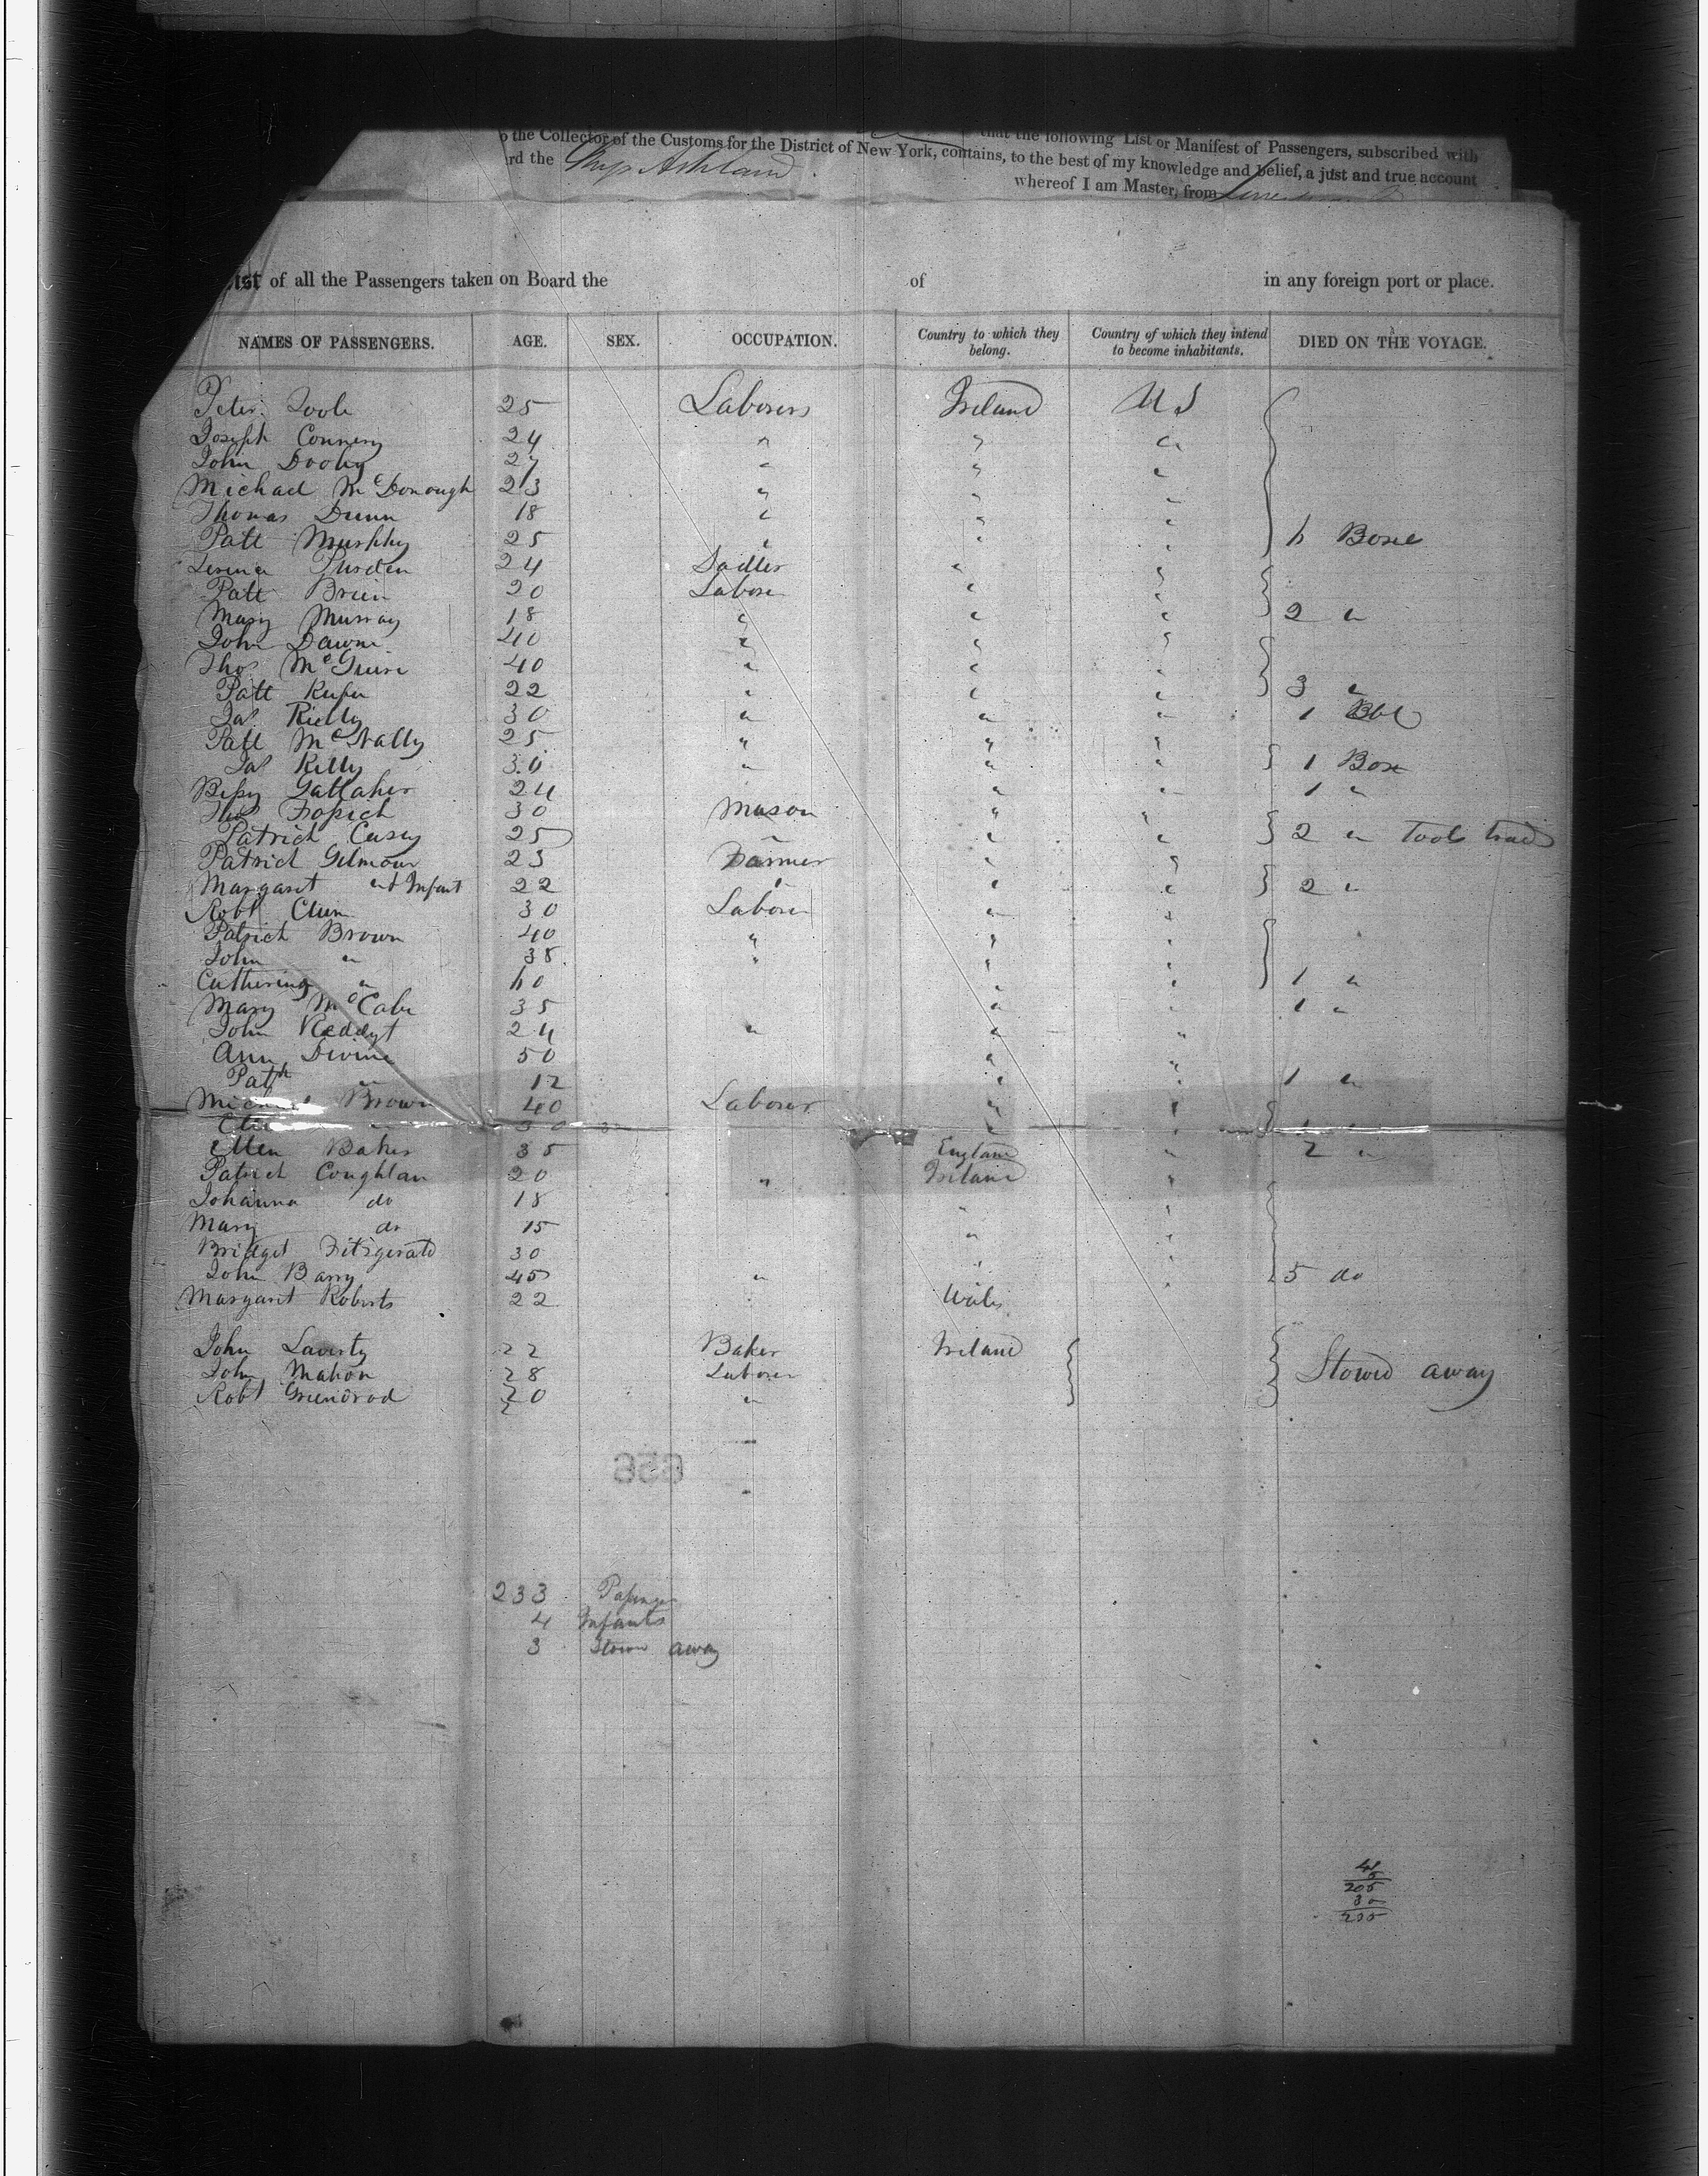 o the Collector of the Customs for the District of New York, contains, to the best of my knowledge and belief, a just and true account
that the following List or Manifest of Passengers, subscribed with
rd the Ship Ashland whereof I am Master, from
List of all the Passengers taken on Board the of in any foreign port or place.
NAMES OF PASSENGERS. AGE. SEX. OCCUPATION. Country to which they belong. Country of which they intend to become inhabitants. DIED ON THE VOYAGE.
Peter Toole 25 Laborers Ireland U S
Joseph Connery 24 " " "
John Dooley 27 " " "
Michael McDonough 23 " " "
Thomas Dunn 18 " " "
Patt Murphy 25 " " " 6 Boxe
24 Sadler " "
Patt Brien 20 Labore " "
Mary Murray 18 " " " 2 "
John Dawne 40 " " "
Thos McGuire 40 " " "
Patt 22 " " " 3 "
Jas Rielly 30 " " " 1 Bbl
Patt McNally 25 " " "
Jas Kelly 30 " " " 1 Box
Bessy Gallaher 24 " " 1 "
Thos 30 Mason " "
Patrick Casey 25 " " " 2 " Tools trade
Patrick Gilmour 23 Farmer " "
Margaret and Infant 22 " " " 2 "
Robt 30 Laborer " "
Patrick Brown 40 " " "
John " 38 " " "
Catherine " 60 " " 1 "
Mary McCabe 35 " " 1 "
John 24 " " "
Ann Devine 50 " "
Patk " 12 " " 1 "
Michael Brown 40 Laborer " "
" " "
Ellen Baker 35 England " 2 "
Patrick Coughlan 20 " Ireland "
Johanna do 18 " "
Mary do 15 " "
Bridget Fitzgerald 30 " "
John Barry 45 " " 5 do
Margaret Roberts 22 Wales
John Laverty 22 Baker Ireland
John Mahon 28 Laborer Stowed away
Robt Greenorod 20 "
858
233 Passenger
4 Infants
3 Stow away
205